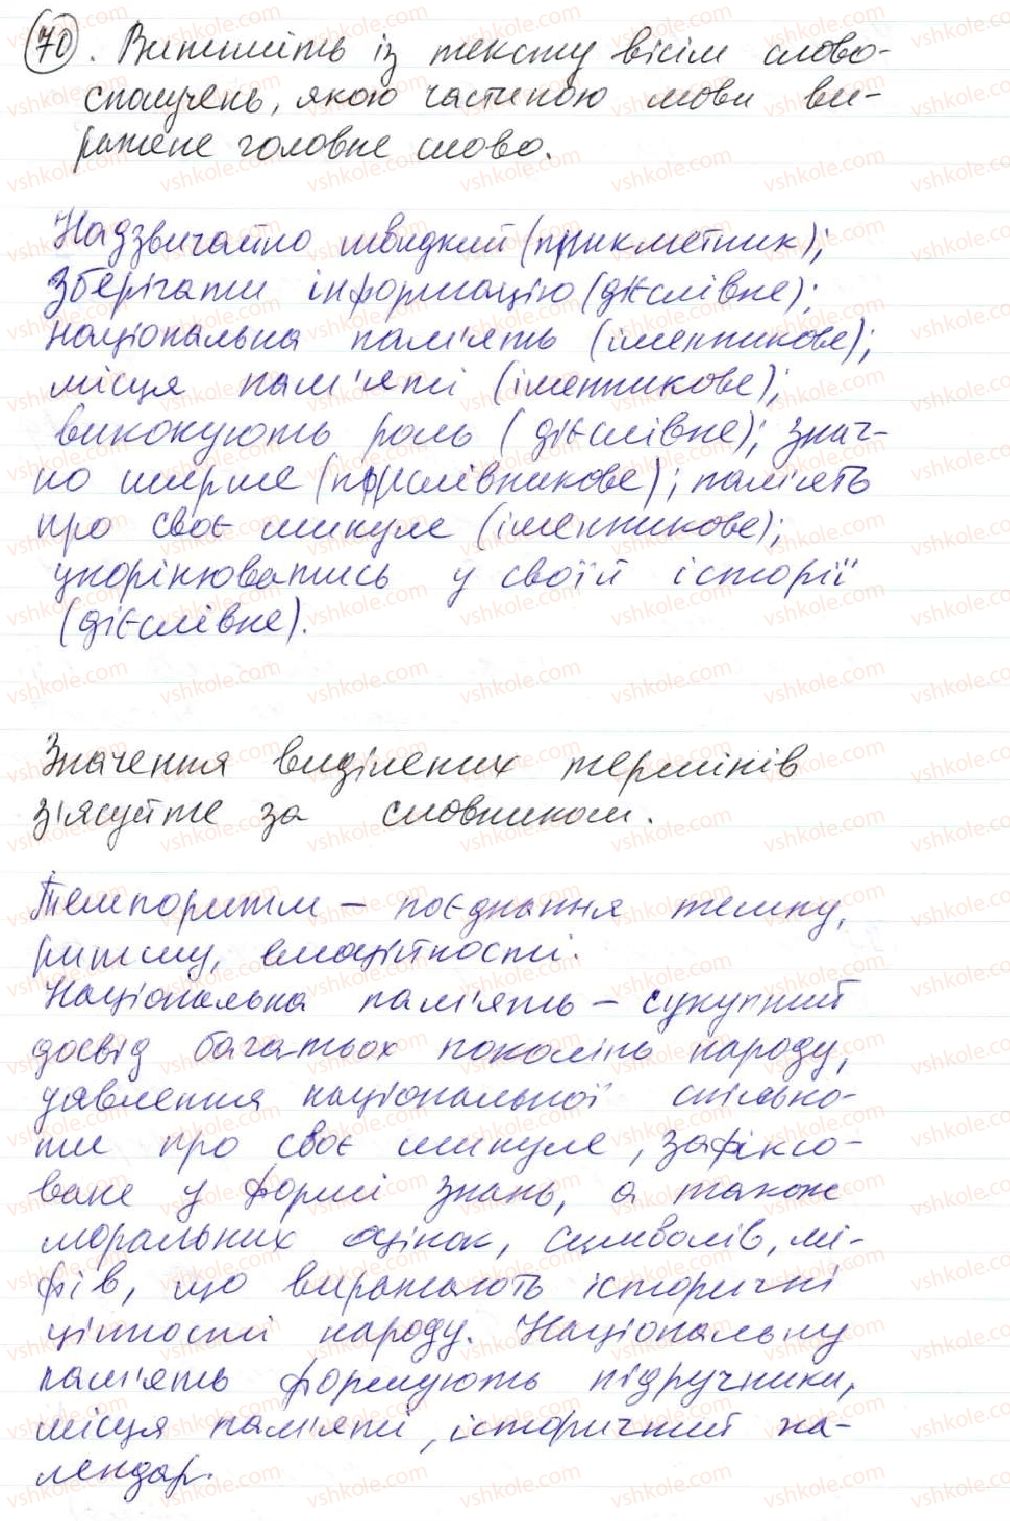 70. Випишіть із тексту вісім слово-
сполучень, якою частиною мови ви-
ражене головне слово.
Надзвичайно швидкий (прикметник);
Зберігати інформацію (дієслівне);
національна пам'ять (іменникове);
місця пам'яті (іменникове);
виконують роль (дієслівне); знач-
но ширше (прислівникове); пам'ять
про своє минуле (іменникове);
укорінюватись у своїй історії
(дієслівне).
Значення виділених термінів
з'ясуйте за словником.
Темпоритм – поєднання темпу,
ритму, емоційності.
Національна пам'ять – сукупний
досвід багатьох поколінь народу,
уявлення національної спільно-
ти про своє минуле, зафіксо-
ване у формі знань, а також
моральних оцінок, символів, мі-
фів, що виражають історичні
цінності народу. Національну
пам'ять формують підручники,
місця пам'яті, історичний ка-
лендар.